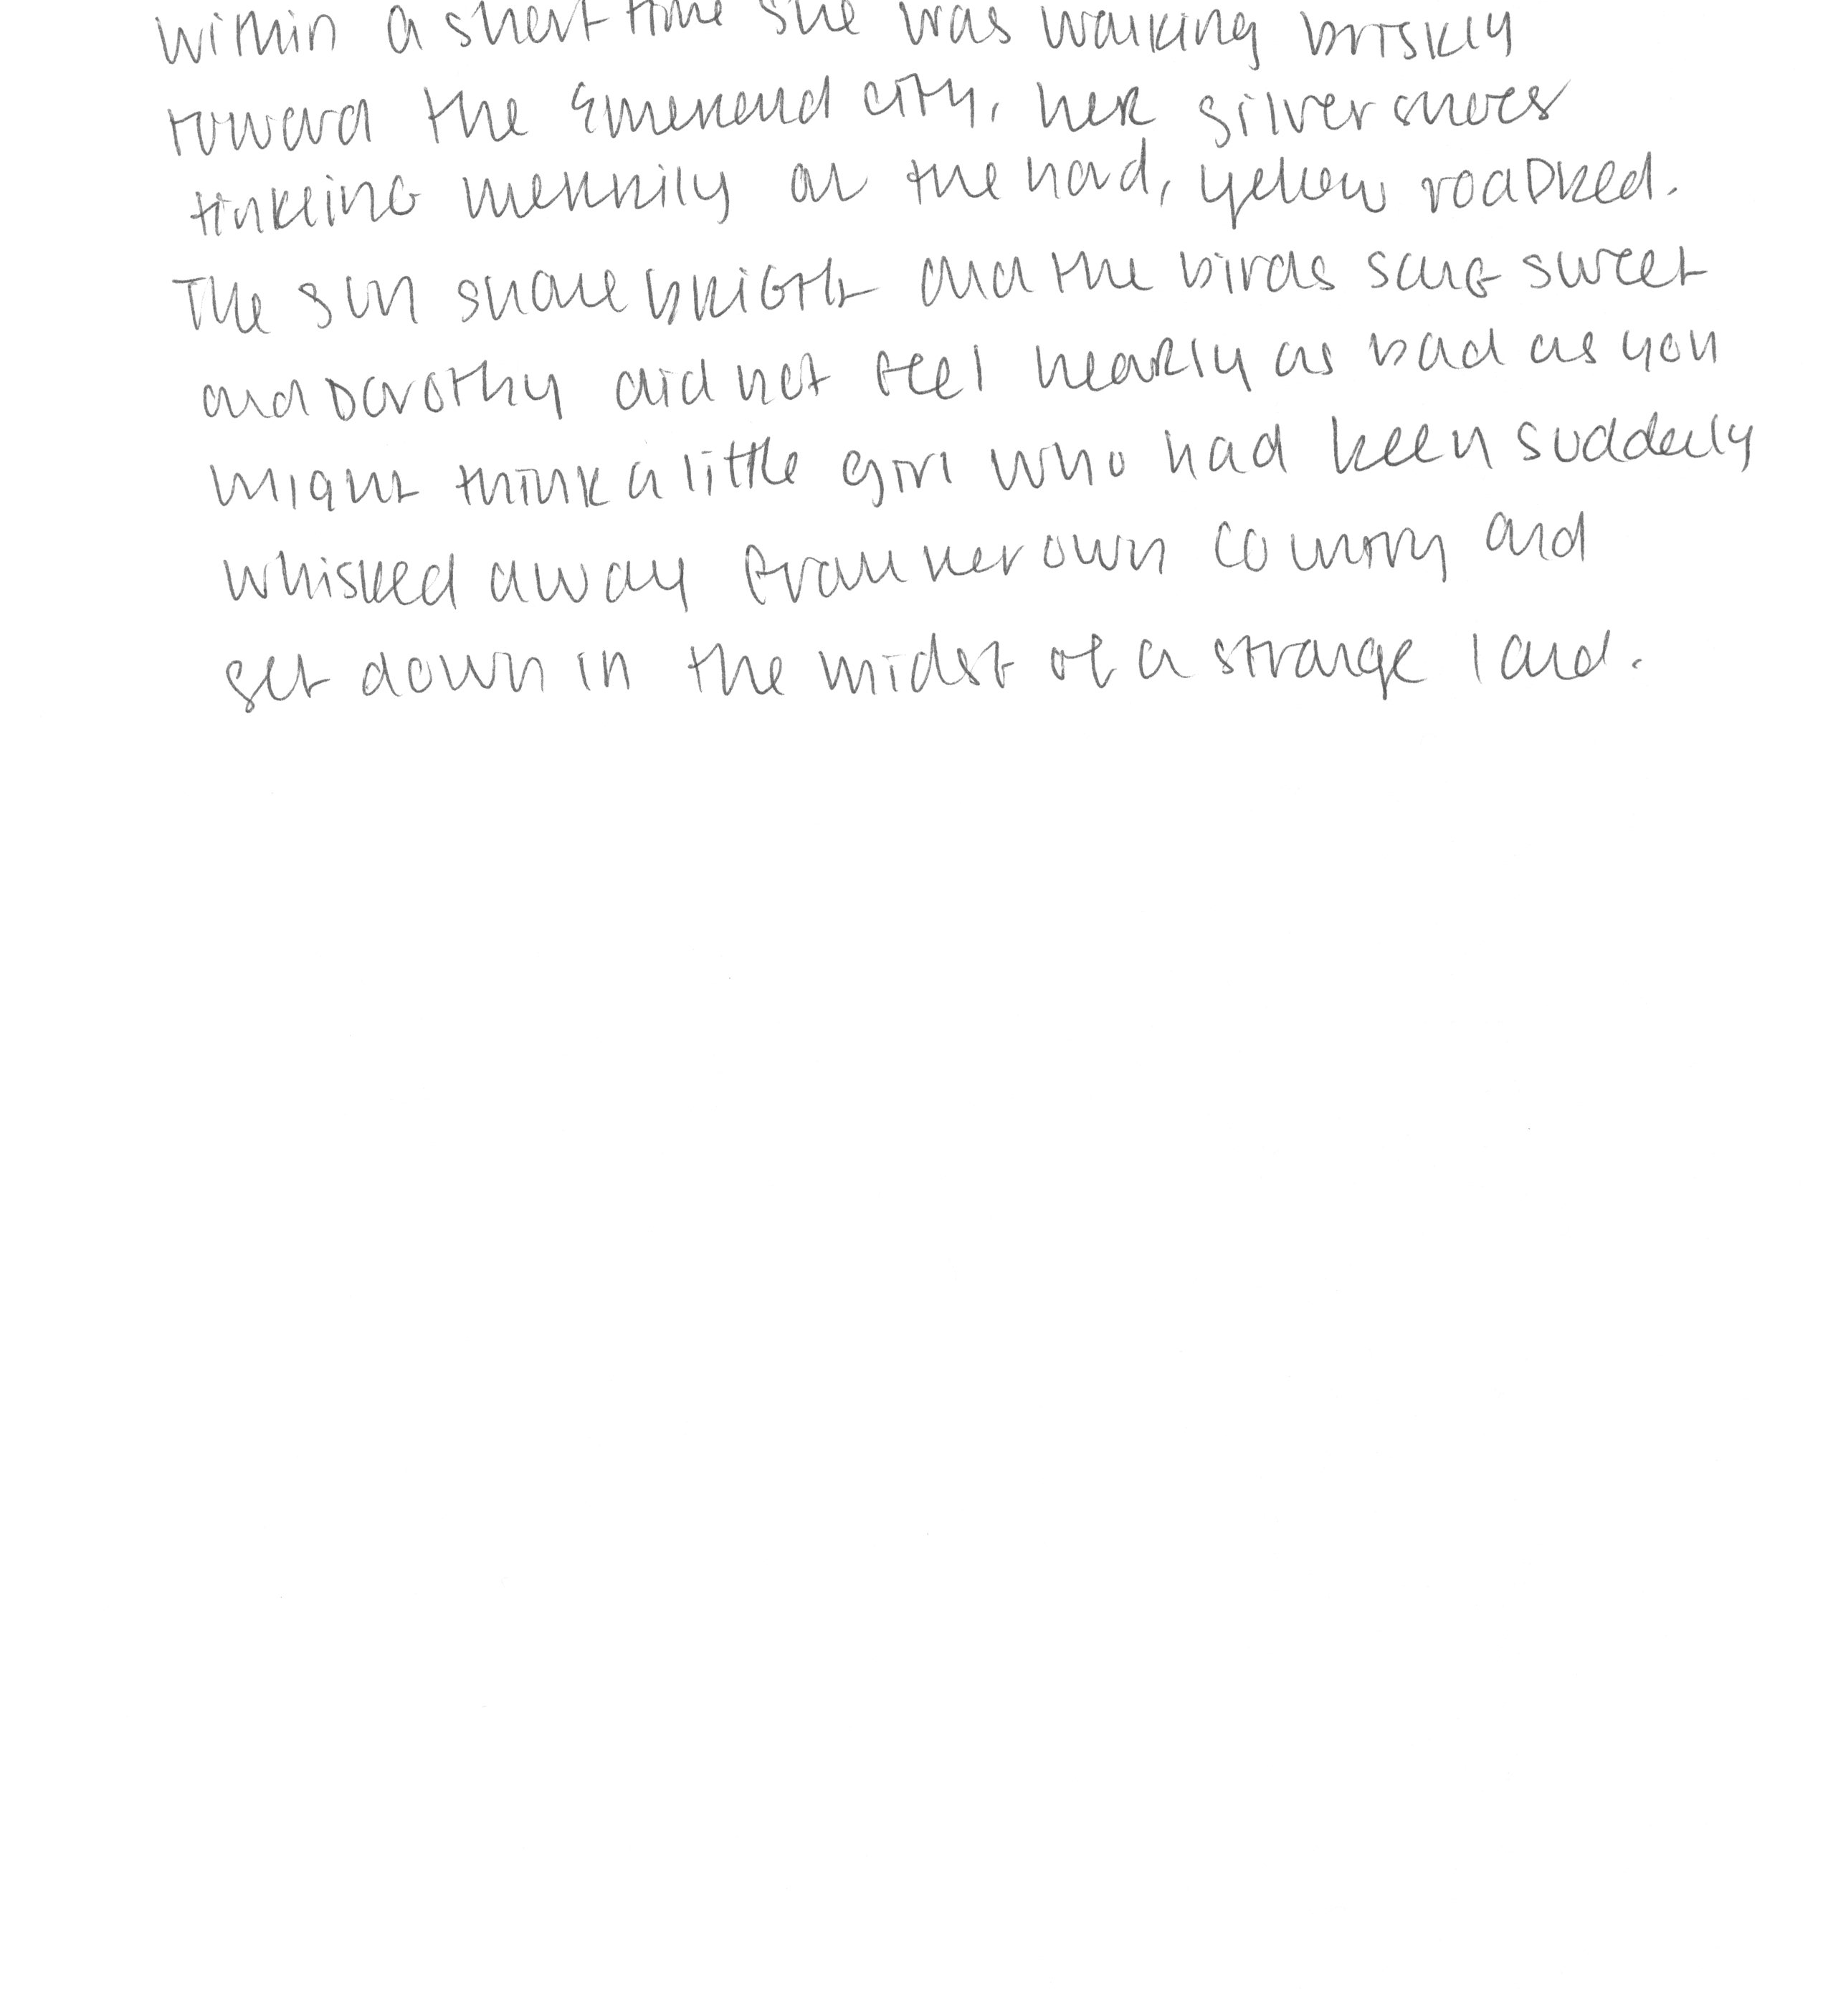 within a short time she was walking briskly
toward the Emerald city, her silver shoes
tinkling merrily on the hard, yellow roadbed.
The sun shone bright and the birds sang sweet
and Dorothy did not feel nearly as bad as you
might think a little girl who had been suddenly
whisked away from her own country and
set down in the midst of a strange land.